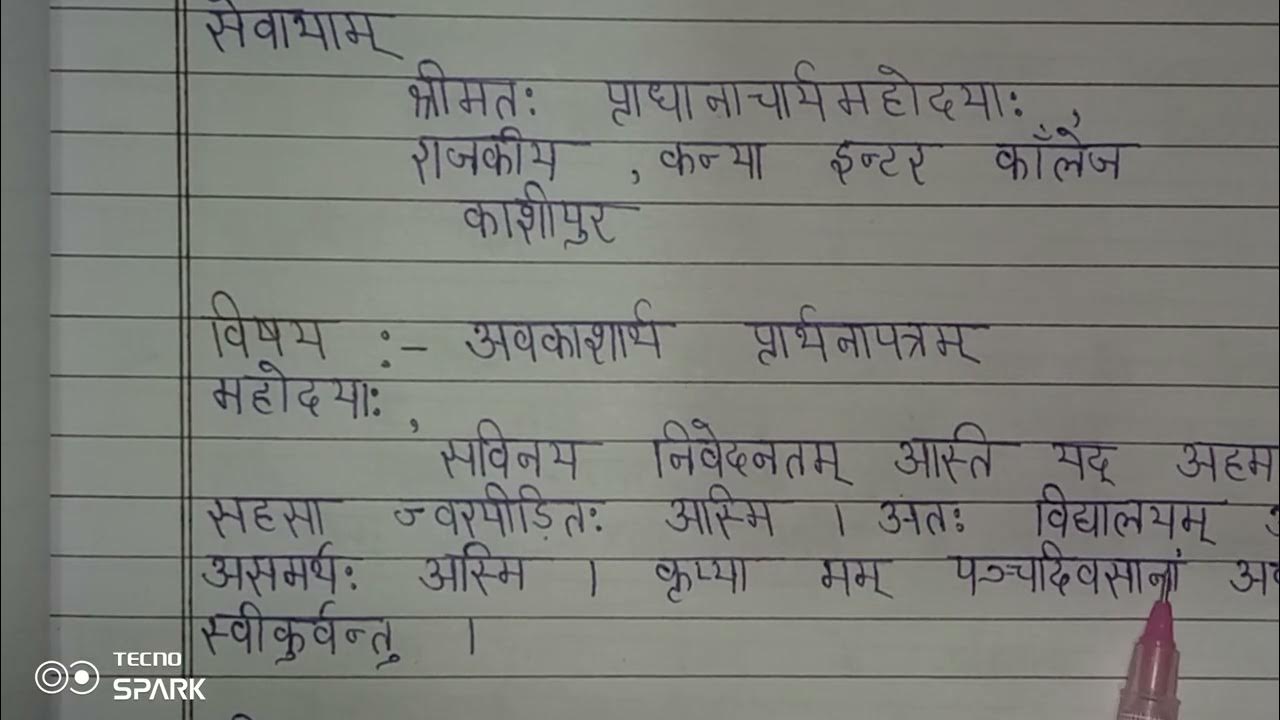 सेवायाम्
श्रीमतः प्राधानाचार्यमहोदयाः,
राजकीय , कन्या इन्टर कॉलेज
काशीपुर
विषय :- अवकाशार्थ प्रार्थनापत्रम्
महोदयाः,
सविनय निवेदनतम् अस्ति यद् अहम
सहसा ज्वरपीड़ितः अस्मि । अतः विद्यालयम्
असमर्थः अस्मि । कृप्या मम् पञ्चदिवसानां
स्वीकुर्वन्तु ।
TECNO
SPARK